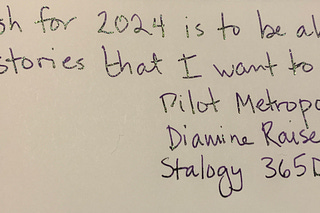 sh for 2024 is to be al
stories that I want to
Pilot Metropo
Diamine Raise
Stalogy 365D